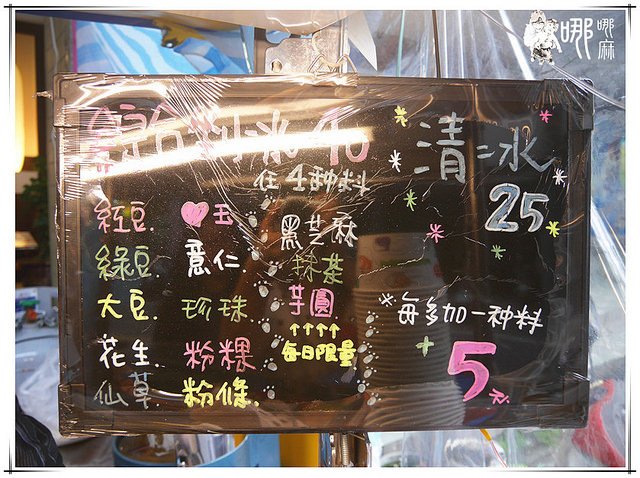 哪哪麻
剉冰 40
任4种料
紅豆.
綠豆.
大豆.
花生.
仙草.
♥玉
薏仁.
珍珠
粉粿
粉條.
黑芝麻
抹茶
芋圓
↑↑↑↑
每日限量
清冰
25
*每多加一种料
+5元